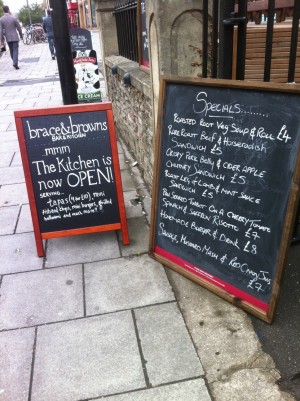 brace&browns
BAR & KITCHEN
mmm
The Kitchen is
now OPEN!
SERVING...
tapas (4 for £10), mini
burgers, grilled
and much more!!
ICE CREAM
Specials
Roasted Root Veg Soup & Roll £4
Rare Roast Beef & Horseradish
Sandwich £5
Crispy Pork Belly & Cider Apple
Chutney Sandwich £5
Roast Leg of Lamb & Mint Sauce
Sandwich £5
Pan Seared Turbot on a Cherry Tomato
Spinach & Saffron Risotto £7
Homemade Burger & Drink £8
Sausage, Mustard Mash & Red Onion Jus
£7